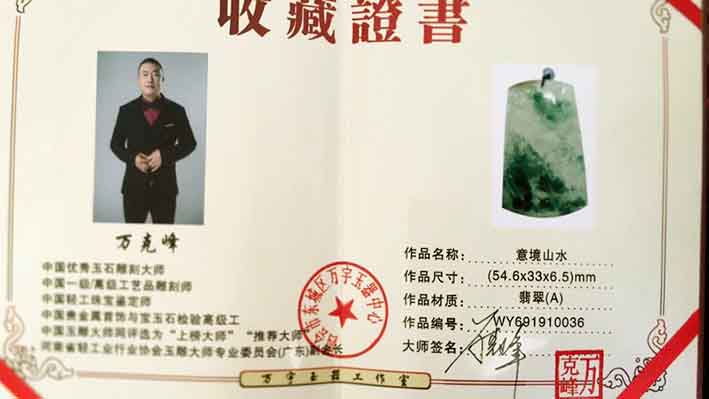 收藏證書
万克峰
中国优秀玉石雕刻大师
中国一级/高级工艺品雕刻师
中国轻工珠宝鉴定师
中国贵金属首饰与宝玉石检验高级工
中国玉雕大师网评选为“上榜大师”“推荐大师”
河南省轻工业行业协会玉雕大师专业委员会(广东)副会长
东城区万字玉器中心
作品名称: 意境山水
作品尺寸: (54.6x33x6.5)mm
作品材质: 翡翠(A)
作品编号: WY691910036
大师签名:
万克峰
万字玉器工作室